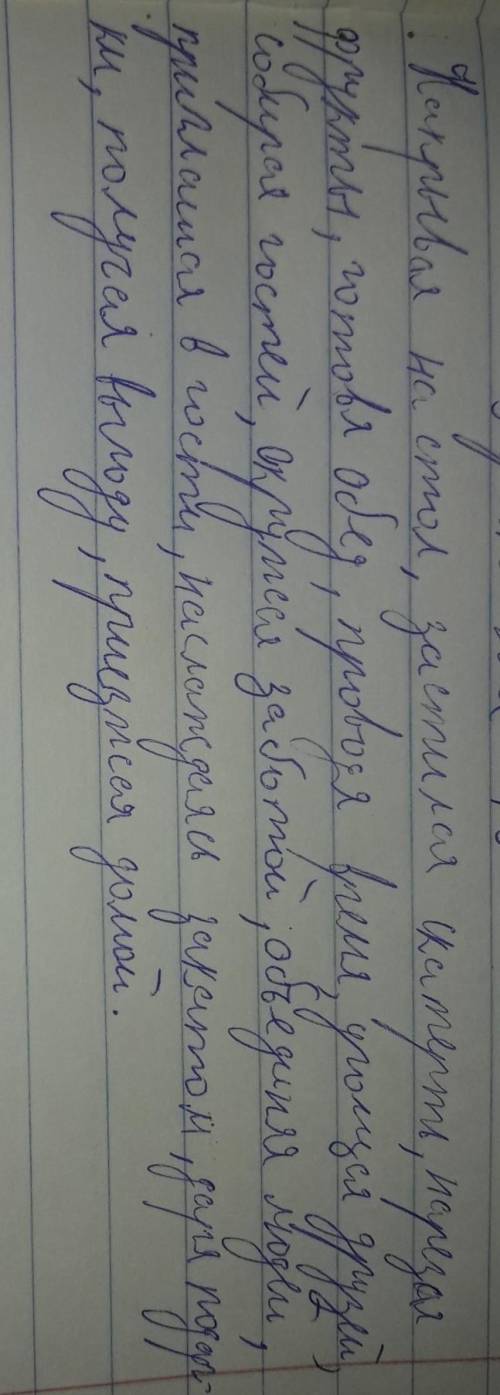 Накрывая на стол, застилая скатерть, нарезая
фрукты, готовя обед, проводя время, угощая друзей,
собирая гостей, окружая заботой, объединяя людей,
приглашая в гости, наслаждаясь закатом, даря подар-
ки, получая выгоду, приезжая домой.